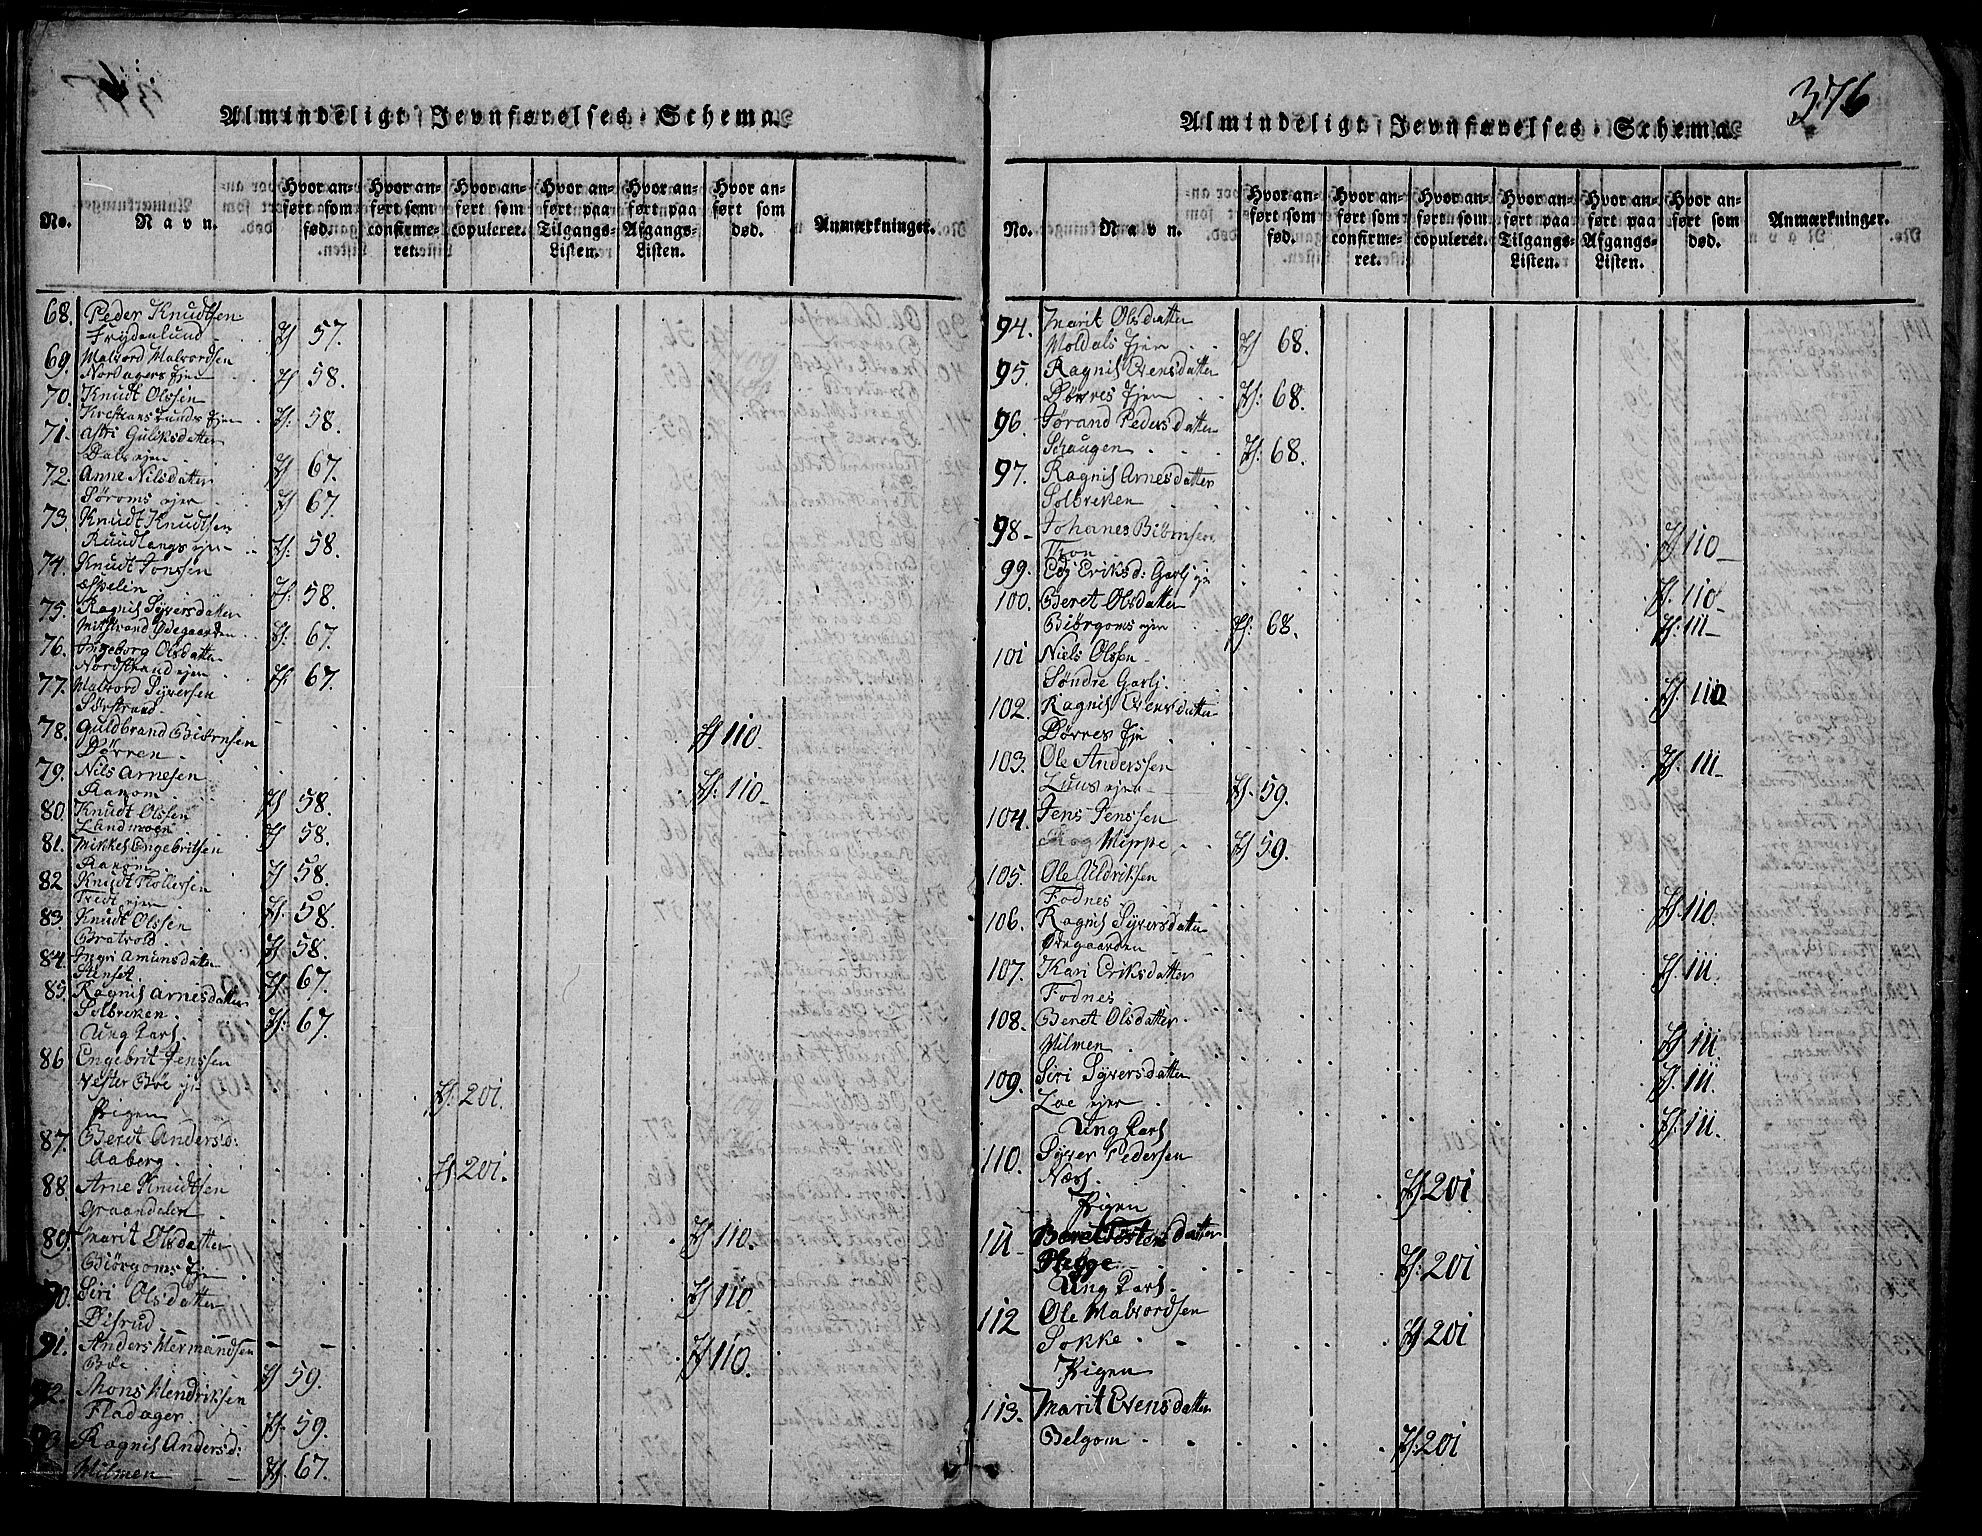 376
Almindeligt Jevnførelses-Schema.
No.
Navn.
Hvor anført som fød.
Hvor anført som confirmeret.
Hvor anført som copuleret.
Hvor anført paa Tilgangs-Listen.
Hvor anført paa Afgangs-Listen.
Hvor anført som død.
Anmærkninger.
68. Peder Knudtsen
Frydenlund . . J 57.
69. Malvord Malvordsen
Nordagers Ejen . . J 58.
70. Knudt Olssen
Kristians Lunds Ejen . J: 58.
71. Astri Guliksdatter
Dals ejen . . J 67.
72. Anne Nilsdatter
Sørøms ejen . . J 67.
73. Knudt Knudtsen
Ruudlangs ejen . . J: 58.
74. Knudt Jonssen
Espelin . . J: 58.
75. Ragnil Syversdatter
Midstrand Ødegaarden . . J: 67.
76. Ingeborg Olsdatter
Nordstrand ejen . J: 67.
77. Malvord Syversen
Sørstrand . J 110.
78. Guldbrand Biørnsen
Dørren . J: 110.
79. Nils Arnesen
Ranom . . J 58.
80. Knudt Olssen
Landmoen J 58.
81. Mikkel Engebritsen
Ranøm . . J 58.
82 Knudt Tollefsen
Tvedt ejen . J: 58.
83. Knudt Olssen
Bratvold . J: 58.
84. Ingri Amunsdatter
Stenset . J 67.
85. Ragnil Arnesdatter
Solbreken . J: 67.
Ung Karl.
86 Engebrit Jenssen
Vester Bøe J: 201.
Pigen
87. Berit Andersd:
Aaberg . J 201.
88. Arne Knudtsen
Graandalen . J 110.
89. Marit Olsdatter
Biørgoms Ejen . J 110.
90. Siri Olsdatter
Disrud J 110.
91. Anders Hermandsen
Bøe . J 59.
92. Mons Hendriksen
Fladager . J 59.
93. Ragnil Andersd:
Hilmen J 67.
Almindeligt Jevnførelses-Schema.
No.
Navn.
Hvor anført som fød.
Hvor anført som confirmeret.
Hvor anført som copuleret.
Hvor anført paa Tilgangs-Listen.
Hvor anført paa Afgangs-Listen.
Hvor anført som død.
Anmærkninger.
94. Marit Olsdatter
Moldals Ejen . . J 68.
95. Ragnil Evensdatter
Dørres Ejen . . J: 68.
96. Jørand Pedersdatter
Schaugen . . . J: 68.
97. Ragnil Arnesdatter
Solbreken J 110
98. Johanes Biørnsen
Thon J 110
99. Eriksd: Garli J: 111
100. Beret Olsdatter
Biørgoms ejen . . J: 68.
101 Niels Olssen
Søndre Garli . J 110
102. Ragnil Evensdatter
Dørres Eje . J 111
103. Ole Anderssen
Luus ejen J. 59.
104. Jens Jenssen
Hippe . . J 59.
105. Ole Uldriksen
Fodnes J 110.
106. Ragnil Syversdatter
Ødegaarden J: 111.
107. Kari Eriksdatter
Fodnes J: 111.
108. Beret Olsdatter
Hilmen . J: 111.
109. Siri Syversdatter
Loe ejen J: 111.
Ung Karl
110. Syver Pedersen
Næss . J 201
Pigen
111 Beret Tostensdatter
Hegge J: 201
Ung Karl.
112 Ole Malvordsen
Sokke . J 201
Pigen
113. Marit Evensdatter
Belgom . J: 201